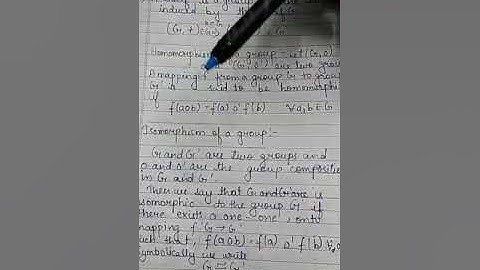 induced by the
Homomorphism of a group :- Let (G, o)
(G', o') are two group
A mapping f from a group G to group
G' is said to be homomorphi
if
f(aob) = f(a) o' f(b) ∀ a, b ∈ G
Isomorphism of a group :-
G and G' are two groups and
o and o' are the group composition
in G and G'.
Then we say that G and G' are is
somorphic to the group G' if
there exists a one one, onto
mapping f: G → G'
such that, f(aob) = f(a) o' f(b) ∀
symbolically we write
G ≅ G'